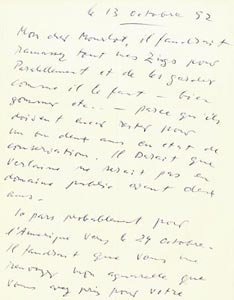 le 13 octobre 52
Mon cher Mourlot, il faudrait
ramasser tout mes zings pour
Parallelement et de les garder
comme il le faut – bien
gommer etc... – parce qu'ils
doivent encor rester pour
un ou deux ans en etat de
conservation. Il parait que
Verlaine ne serait pas en
domaine public avant deux
ans.
Je pars probablement pour
l'Amérique vers le 24 octobre.
Il faudrait que vous me
renvoyez mon aquarelle que
vous avez pris pour votre